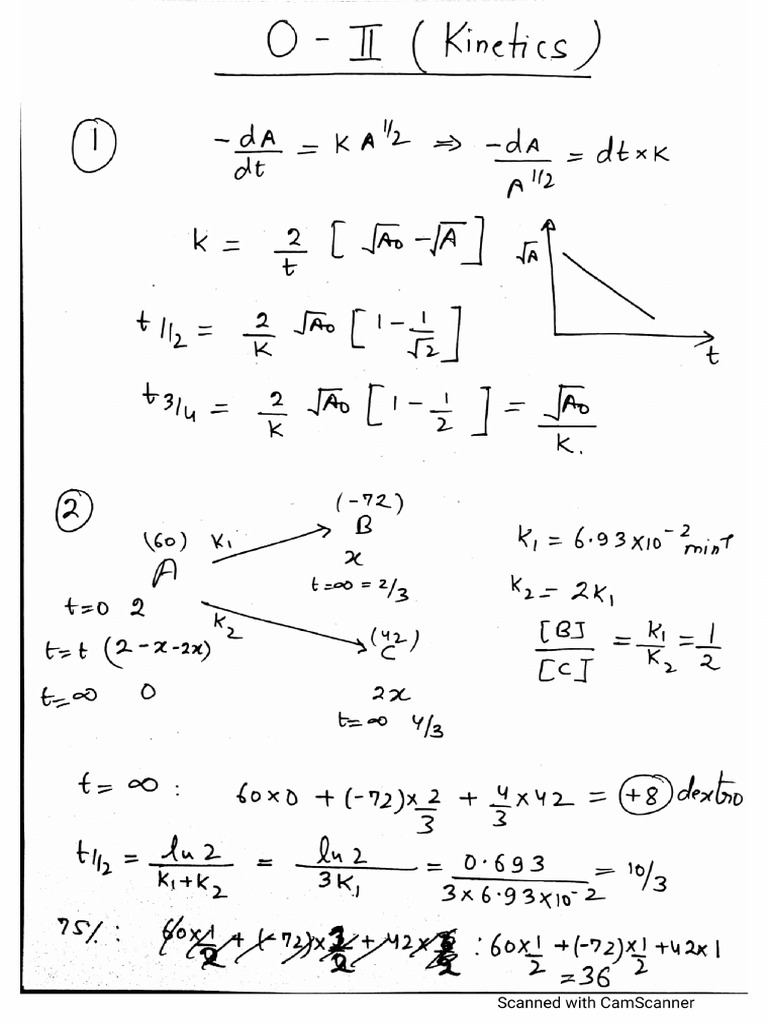 O - II ( Kinetics )
① -dA/dt = K A^1/2 ⇒ -dA/A^1/2 = dt × K
K = 2/t [ √A0 - √A ]
√A
t 1/2 = 2/K √A0 [ 1 - 1/√2 ]
t
t 3/4 = 2/K √A0 [ 1 - 1/2 ] = √A0/K.
②
(-72)
(60) K1 B
A x
t=∞ = 2/3
K1 = 6.93×10^-2 min^-1
t=0 2
K2
K2 = 2K1
t=t (2-x-2x)
(42)
C
[B]/[C] = K1/K2 = 1/2
t=∞ 0
2x
t=∞ 4/3
t = ∞ : 60×0 + (-72)×2/3 + 4/3×42 = +8 dextro
t1/2 = ln 2/K1+K2 = ln 2/3K1 = 0.693/3×6.93×10^-2 = 10/3
75% : : 60×1/2 + (-72)×1/2 + 42×1
= 36
Scanned with CamScanner